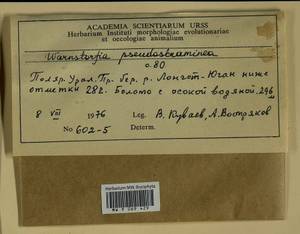 ACADEMIA SCIENTIARUM URSS
Herbarium Instituti morphologiae evolutionariae
et oecologiae animalium
Warnstorfia pseudostraminea
о.80
Поляр. Урал. Пр. бер. р. Лонгот-Юган ниже
отметки 282. Болото с осокой водяной. 296
8 VIII 1976 Leg. В. Куваев, А. Востряков
No 602-5 Determ.
Herbarium MW, Bryophyta